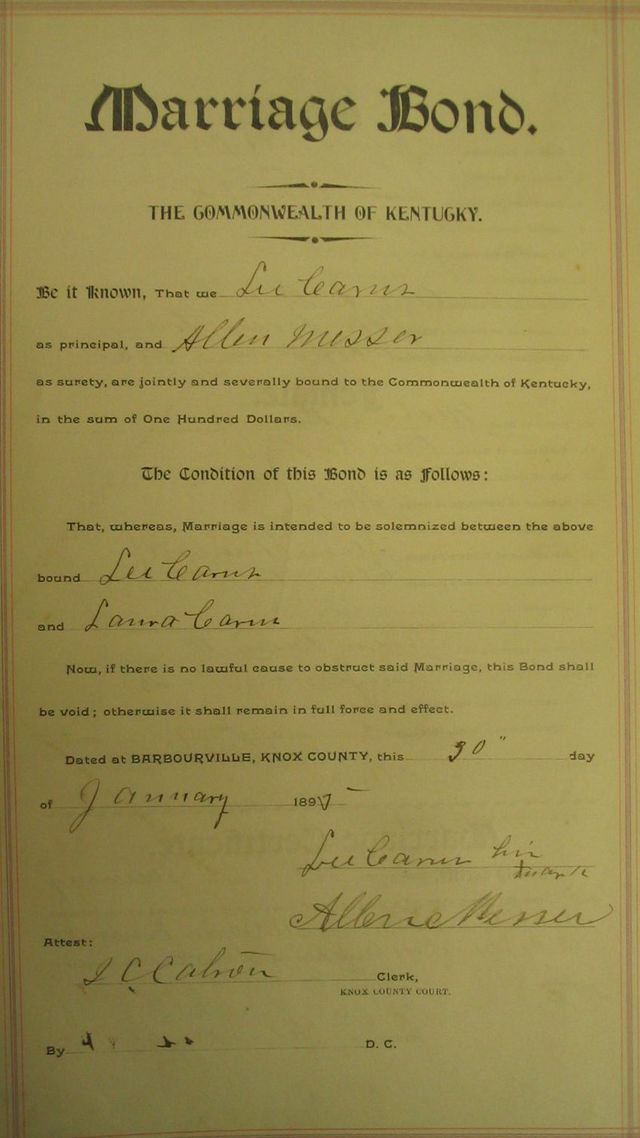 Marriage Bond.
THE COMMONWEALTH OF KENTUCKY.
Be it Known, That we Lee Carnes
as principal, and Allen Messer
as surety, are jointly and severally bound to the Commonwealth of Kentucky,
in the sum of One Hundred Dollars.
The Condition of this Bond is as Follows:
That, whereas, Marriage is intended to be solemnized between the above
bound Lee Carnes
and Laura Carnes
Now, if there is no lawful cause to obstruct said Marriage, this Bond shall
be void; otherwise it shall remain in full force and effect.
Dated at BARBOURVILLE, KNOX COUNTY, this 30" day
of January 189
Lee Carnes his
mark
Allen Messer
Attest:
Clerk,
KNOX COUNTY COURT.
By D. C.